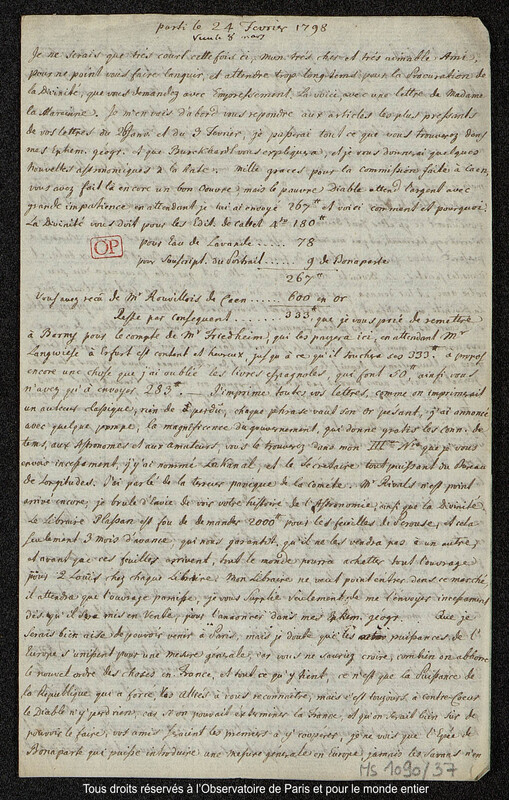 parti le 24 Fevrier 1798
Je ne serais que très court cette fois ci, mon très cher et très aimable Ami,
pour ne point vous faire languir, et attendre trop longtems pour la Procuration de
la Divinité, que vous demandez avec Empressement. La voici, avec une lettre de Madame
la Marienne. Je m'en vais d'abord vous répondre aux articles les plus pressants
de vos lettres du et du 3 Fevrier, je passerai tout ce que vous trouverez dans
mes Ephem. géogr. que Burckhardt vous expliquera, et je vous donnerai quelques
Nouvelles astronomiques à la hate. Mille graces pour la commission faite à Caen,
vous avez fait là encore un bon Oeuvre; mais le pauvre Diable attend l'argent avec
grande impatience en attendant je lui ai envoyé 267# et voici comment et pourquoi:
La Divinité vous doit pour les Edit. de 180#
pour Eau de Lavande ...... 78
pour Souscript. du Portrait ...... 9 de Bonaparte
267#
OP
Vous avez recû de Mr Rouvillois de Caen ...... 600 en or
Reste par conséquent ...... 333# que je vous prie de remettre
à Barry pour le compte de Mr Friedheim, qui les payera ici, en attendant Mr
Langwiese à Erfort est content et heureux, jusqu'à ce qu'il touchera ses 333#. à propos
encore une chose que j'ai oublié les livres espagnoles, qui font 50#, ainsi vous
n'avez qu'à envoyer 283#. J'imprime toutes vos lettres, comme on imprimerait
un auteur classique, rien de perdu, chaque phrase vaut son Or pesant, j'ai annoncé
avec quelque pompe, la magnificence du gouvernement, qui donne gratis les conn. de
tems, aux Astronomes et aux amateurs, vous le trouverez dans mon III que je vous
envoie incessament, j'y ai nommé Lakanal, et le Secretaire tout puissant du Bureau
de Longitudes. J'ai parlé de la terreur panique de la Comète. Mr Rivals n'est point
arrivé encore, je brule d'Envie de voir votre histoire de l'Astronomie, ainsi que la Divinité.
Le Libraire Plassan est fou de demander 2000# pour les feuilles de , et cela
seulement 3 mois d'avance, qui nous garantit, qu'il ne les vendra pas à un autre,
et avant que ces feuilles arrivent, tout le monde pourra achetter tout l'ouvrage
pour 2 Louis chez chaque Libraire. Mon Libraire ne veut point entrer dans ce marché
il attendra que l'ouvrage paraisse, je vous supplie seulement, de me l'envoyer incessament
dès qu'il sera mis en Vente, pour l'annoncer dans mes Ephem. géogr. Que je
serais bien aise de pouvoir venir à Paris, mais je doute que les puissances de l'
Europe s'unissent pour une mesure generale, car vous ne sauriez croire, combien on abhorre
le nouvel ordre des choses en France, et tout ce qui y tient, ce n'est que la Puissance de
la République qui a forcé les alliés à vous reconnaître, mais c'est toujours à contre-Coeur
le Diable n'y perd rien, car si on pouvait exterminer la France, et qu'on serait bien sûr de
pouvoir le faire, vos amis seraient les premiers à y cooperer, je ne vois que l'Epée de
Bonaparte qui puisse introduire une mesure generale en Europe, jamais les savans n'en
Ms 1090/37
Tous droits réservés à l'Observatoire de Paris et pour le monde entier